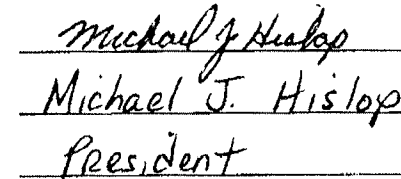 Michael J Hislop
Michael J. Hislop
President